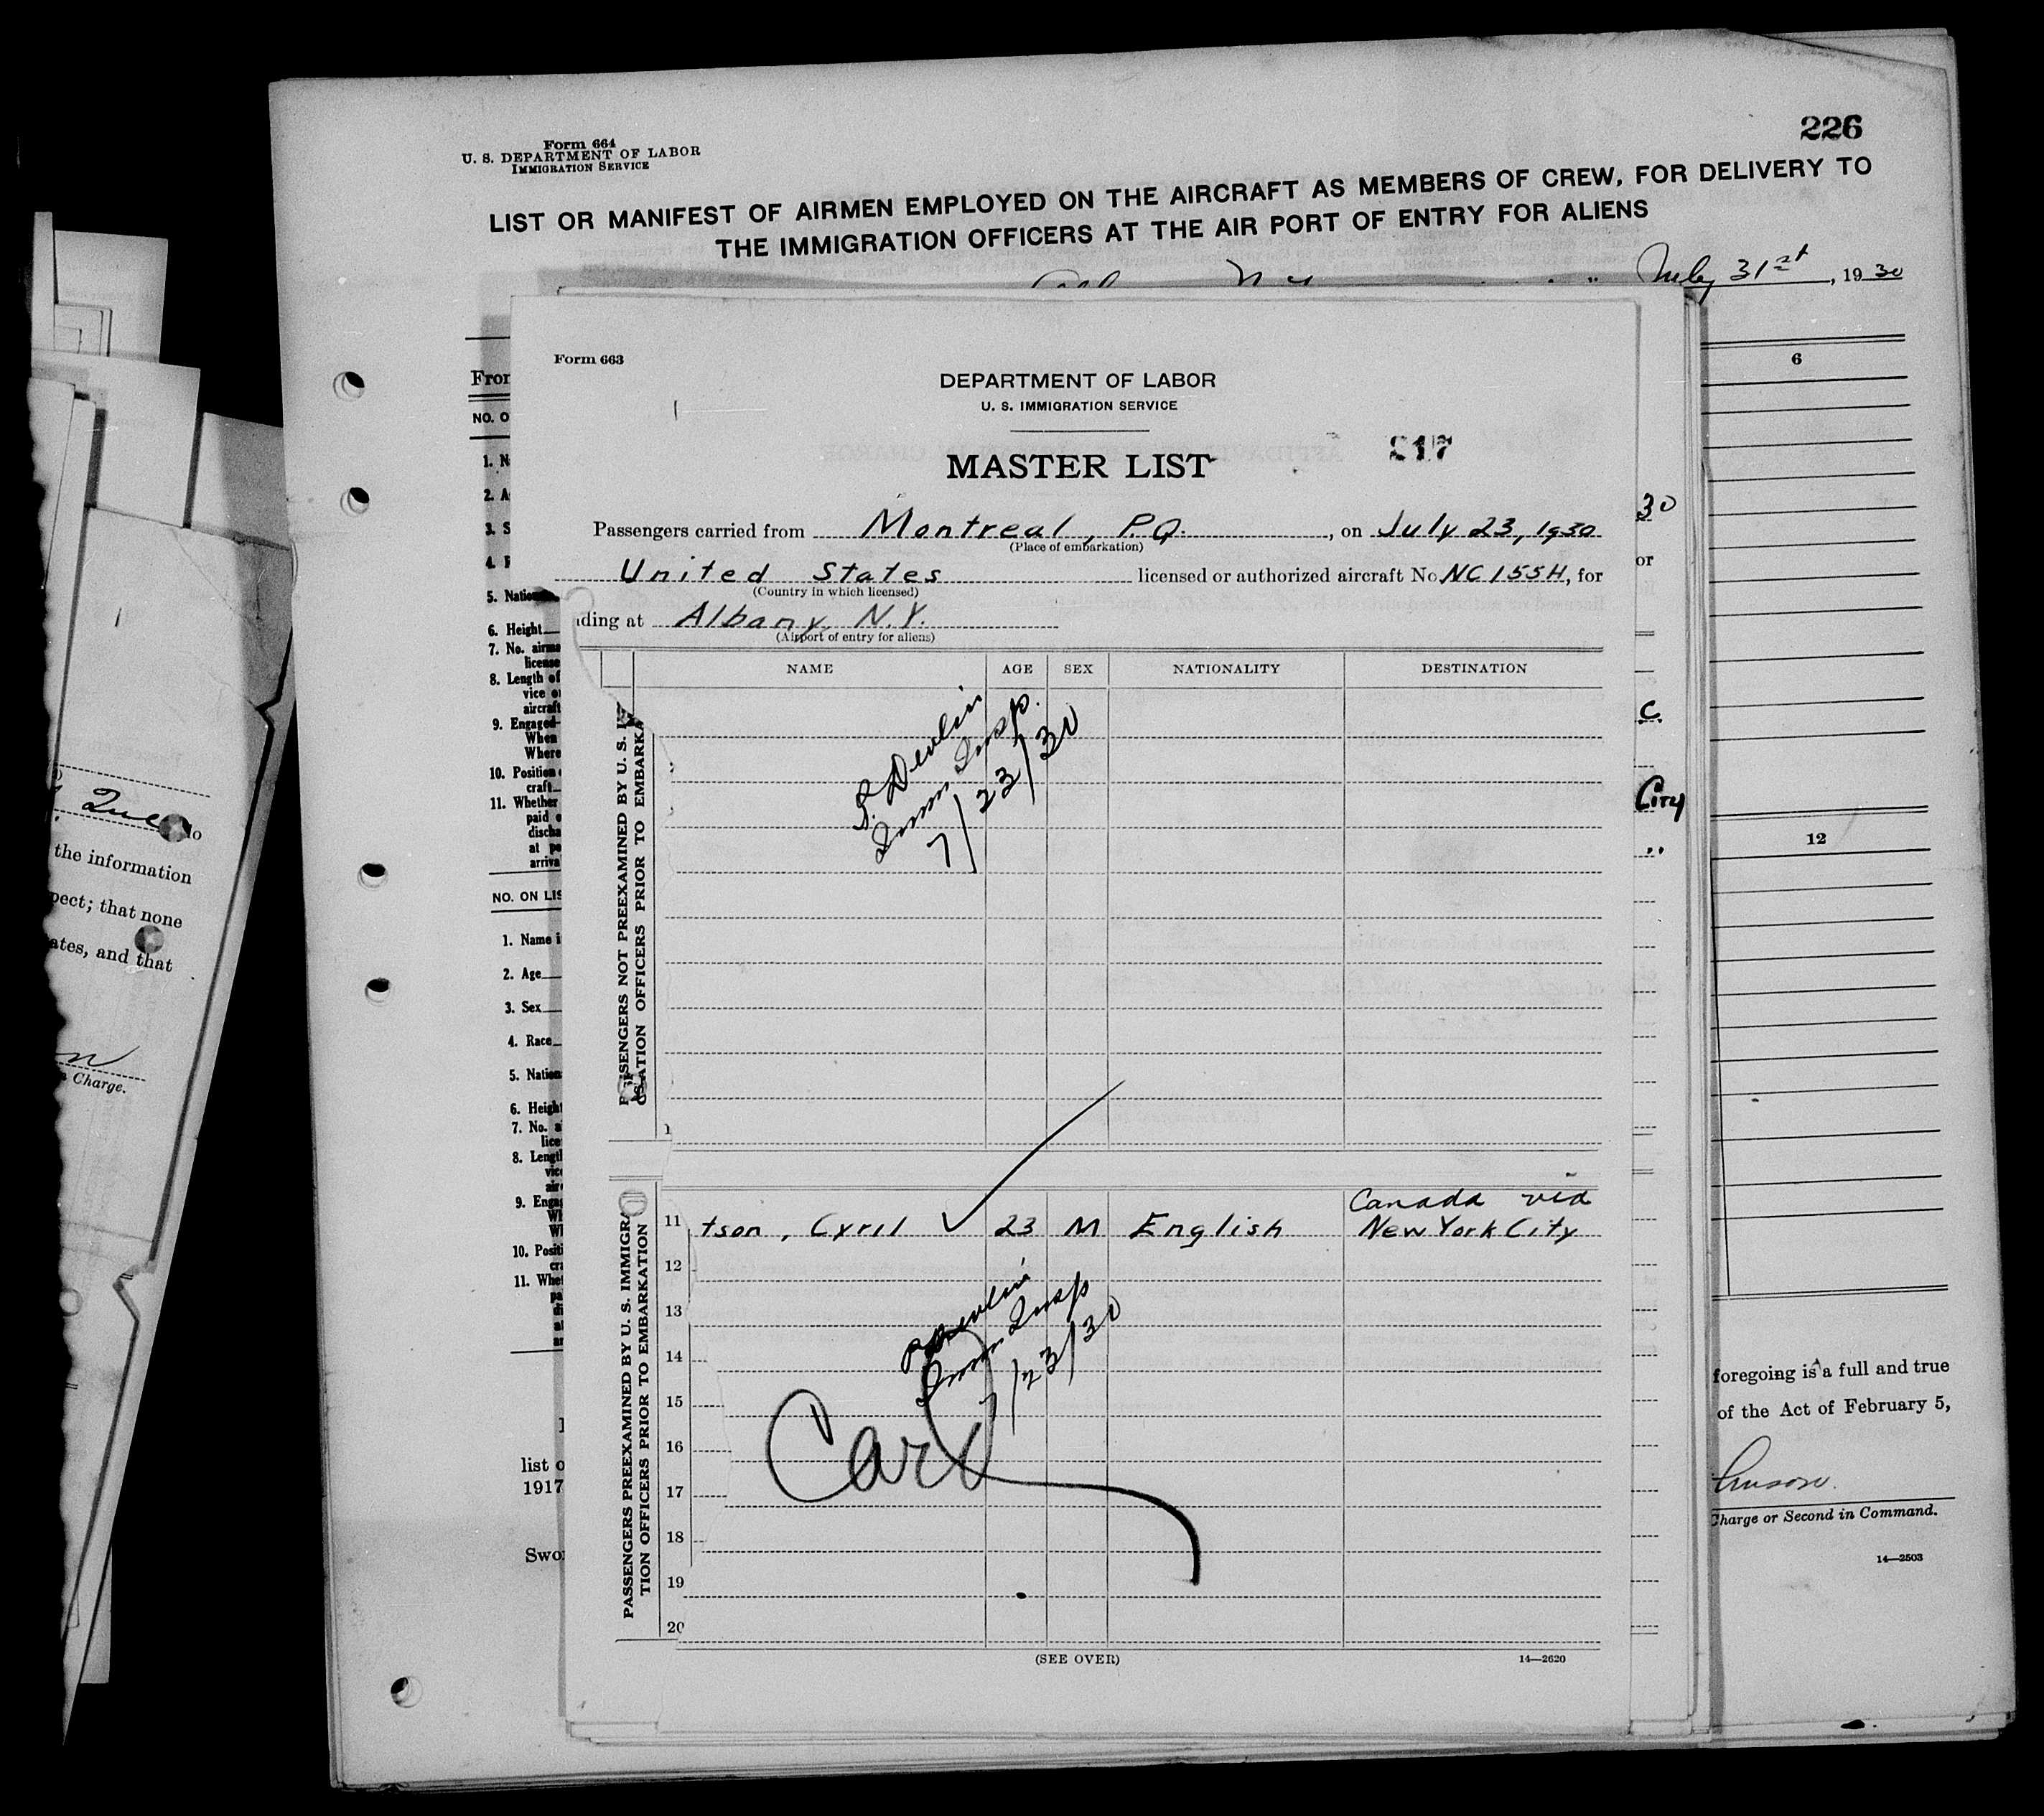 226
Form 664
U. S. DEPARTMENT OF LABOR
IMMIGRATION SERVICE
LIST OR MANIFEST OF AIRMEN EMPLOYED ON THE AIRCRAFT AS MEMBERS OF CREW, FOR DELIVERY TO
THE IMMIGRATION OFFICERS AT THE AIR PORT OF ENTRY FOR ALIENS
July 31st, 1930
6
Fron
NO. O
1. N
2. A
3. S
4.
5. Nation
6. Height
7. No. airma
license
8. Length of
vice o
aircraft
9. Engaged
When
Where
10. Position
craft
11. Whether
paid
discha
at po
arriva
NO. ON LIS
1. Name i
2. Age
3. Sex
4. Race
5. Nation
6. Heigh
7. No. a
lice
8. Lengt
vic
air
9. Enga
Wh
Wh
10. Posit
cra
11. Whe
pa
di
at
ar
list o
1917
Swo
Form 663
DEPARTMENT OF LABOR
U. S. IMMIGRATION SERVICE
217
MASTER LIST
Passengers carried from Montreal, P.Q., on July 23, 1930
(Place of embarkation)
United States licensed or authorized aircraft No. NC155H, for
(Country in which licensed)
ding at Albany, N.Y.
(Airport of entry for aliens)
NAME AGE SEX NATIONALITY DESTINATION
PASSENGERS NOT PREEXAMINED BY U. S. I
GRATION OFFICERS PRIOR TO EMBARKA
S. Devlin
Imm Insp.
7/23/30
PASSENGERS PREEXAMINED BY U. S. IMMIGRA
TION OFFICERS PRIOR TO EMBARKATION
Canada via
11 tson, Cyril ✓ 23 M English New York City
12
13
14
15
16
17
18
19
20
Devlin
Imm Insp
7/23/30
Card
(SEE OVER)
14—2620
30
or
C.
City
"
12
foregoing is a full and true
of the Act of February 5,
Charge or Second in Command.
14—2503
Que to
the information
pect; that none
ates, and that
n
Charge.